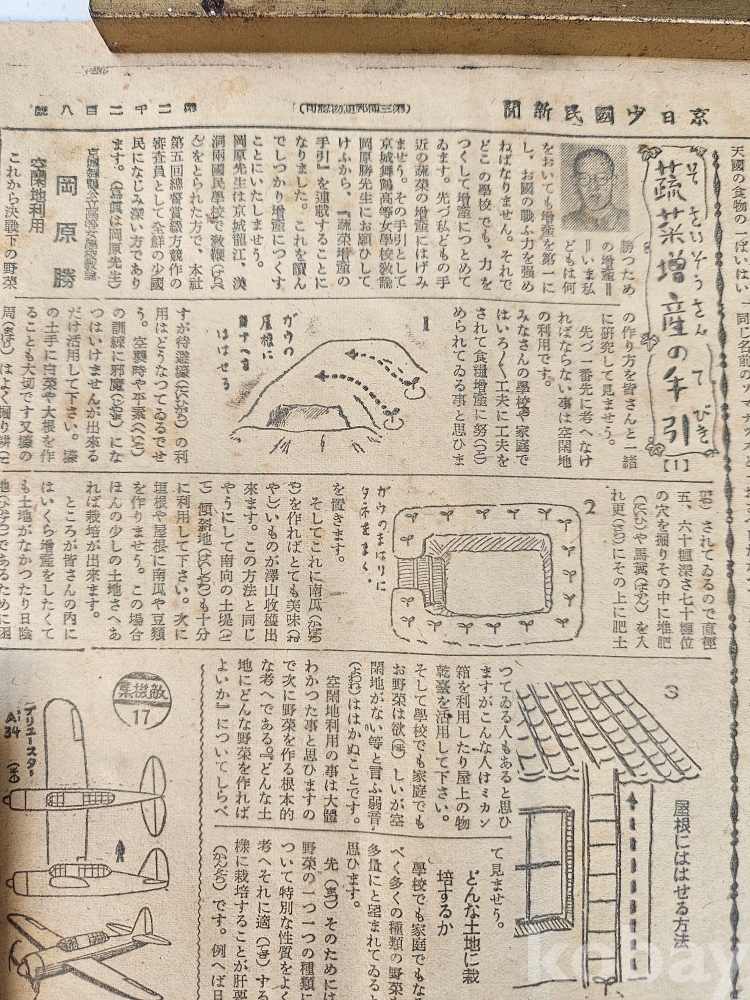 京日少國民新聞
(第三種郵便物認可)
第二千二百八號
天國の食物の一ぱいはい
そさいぞうさんのてびき
蔬菜增産の手引
【1】
勝つため
の增産‖
‖いま私
どもは何
をおいても增産を第一に
し、お國の戰ふ力を强め
ねばなりません。それで
どこの學校でも、力を
つくして增産につとめて
ゐます。先づ私どもの手
近の蔬菜の增産にはげみ
ませう。その手引として
京城舞鶴高等女學校敎諭
岡原勝先生にお願ひして
けふから、『蔬菜增産の
手引』を連載することに
なりました。これを讀ん
でしつかり增産につくす
ことにいたしませう。
岡原先生は京城龍江、渼
洞兩國民學校で敎鞭
をとられた方で、本社
第五回總督賞綴方競作の
審査員として全鮮の少國
民になじみ深い方であり
ます。(寫眞は岡原先生)
京城舞鶴公立高等女學校敎諭
岡原勝
空閑地利用
これから決戰下の野菜
の作り方を皆さんと一緒
に研究して見ませう。
先づ一番先に考へなけ
ればならない事は空閑地
の利用です。
みなさんの學校や家庭で
はいろ〱工夫に工夫を
されて食糧增産に努(つと)
められてゐる事と思ひま
1
ガウの
屋根に
ははせる
すが待避壕(たいひがう)の利
用はどうなつてゐるでせ
う。空襲時や平素(へいそ)
の訓練に邪魔(じやま)にな
つてはいけませんが出來る
だけ活用して下さい。壕
の土手に白菜や大根を作
ることも大切です又壕の
周(まはり)はよく掘り耕
されてゐるので直徑
五、六十糎深さ七十糎位
の穴を掘りその中に堆肥
(たいひ)や馬糞(ばふん)を入
れ更(さら)にその上に肥土
2
ガウのまはりに
タネをまく。
を置きます。
そしてこれに南瓜(かぼちや)
を作ればとても美味(おい
し)いものが澤山收穫出
來ます。この方法と同じ
やうにして南向の土堤(どて)
傾斜地(けいしやち)も十分
に利用して下さい。次に
垣根や屋根に南瓜や豆類
を作りませう。この場合
ほんの少しの土地さへあ
れば栽培が出來ます。
ところが皆さんの內に
はいくら增産をしたくて
も土地がなかつたり日陰
地(ひかげち)であるために困
3
屋根にははせる方法
つてゐる人もあると思ひ
ますがこんな人はミカン
箱を利用したり屋上の物
乾臺を活用して下さい。
そして學校でも家庭でも
お野菜は欲(ほ)しいが空
閑地がない等と言ふ弱音
(よわね)ははかぬことです。
空閑地利用の事は大體
わかつた事と思ひますの
で次に野菜を作る根本的
な考へである。『どんな土
地にどんな野菜を作れば
よいか』についてしらべ
て見ませう。
どんな土地に栽
培するか
學校でも家庭でもな
べく多くの種類の野菜を
多量にと望まれてゐると
思ひます。
先(まづ)そのためには
野菜の一つ一つの種類に
ついて特別な性質をよく
考へそれに適(てき)する
樣に栽培することが肝要
(かんえう)です。例へば日
敵機集
17
ブリュースター
A-34
(米)
kobay